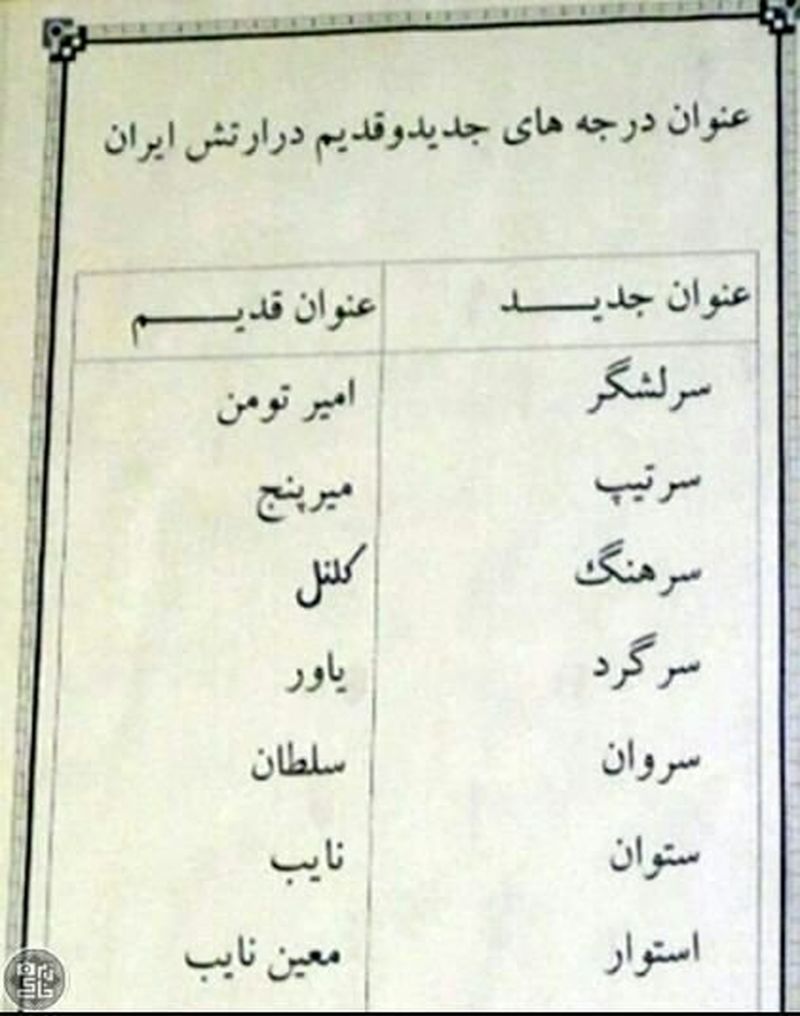 عنوان درجه های جدیدوقدیم درارتش ایران
عنوان جدیـــد عنوان قدیـــم
سرلشگر امیر تومن
سرتیپ میرپنج
سرهنگ کلنل
سرگرد یاور
سروان سلطان
ستوان نایب
استوار معین نایب